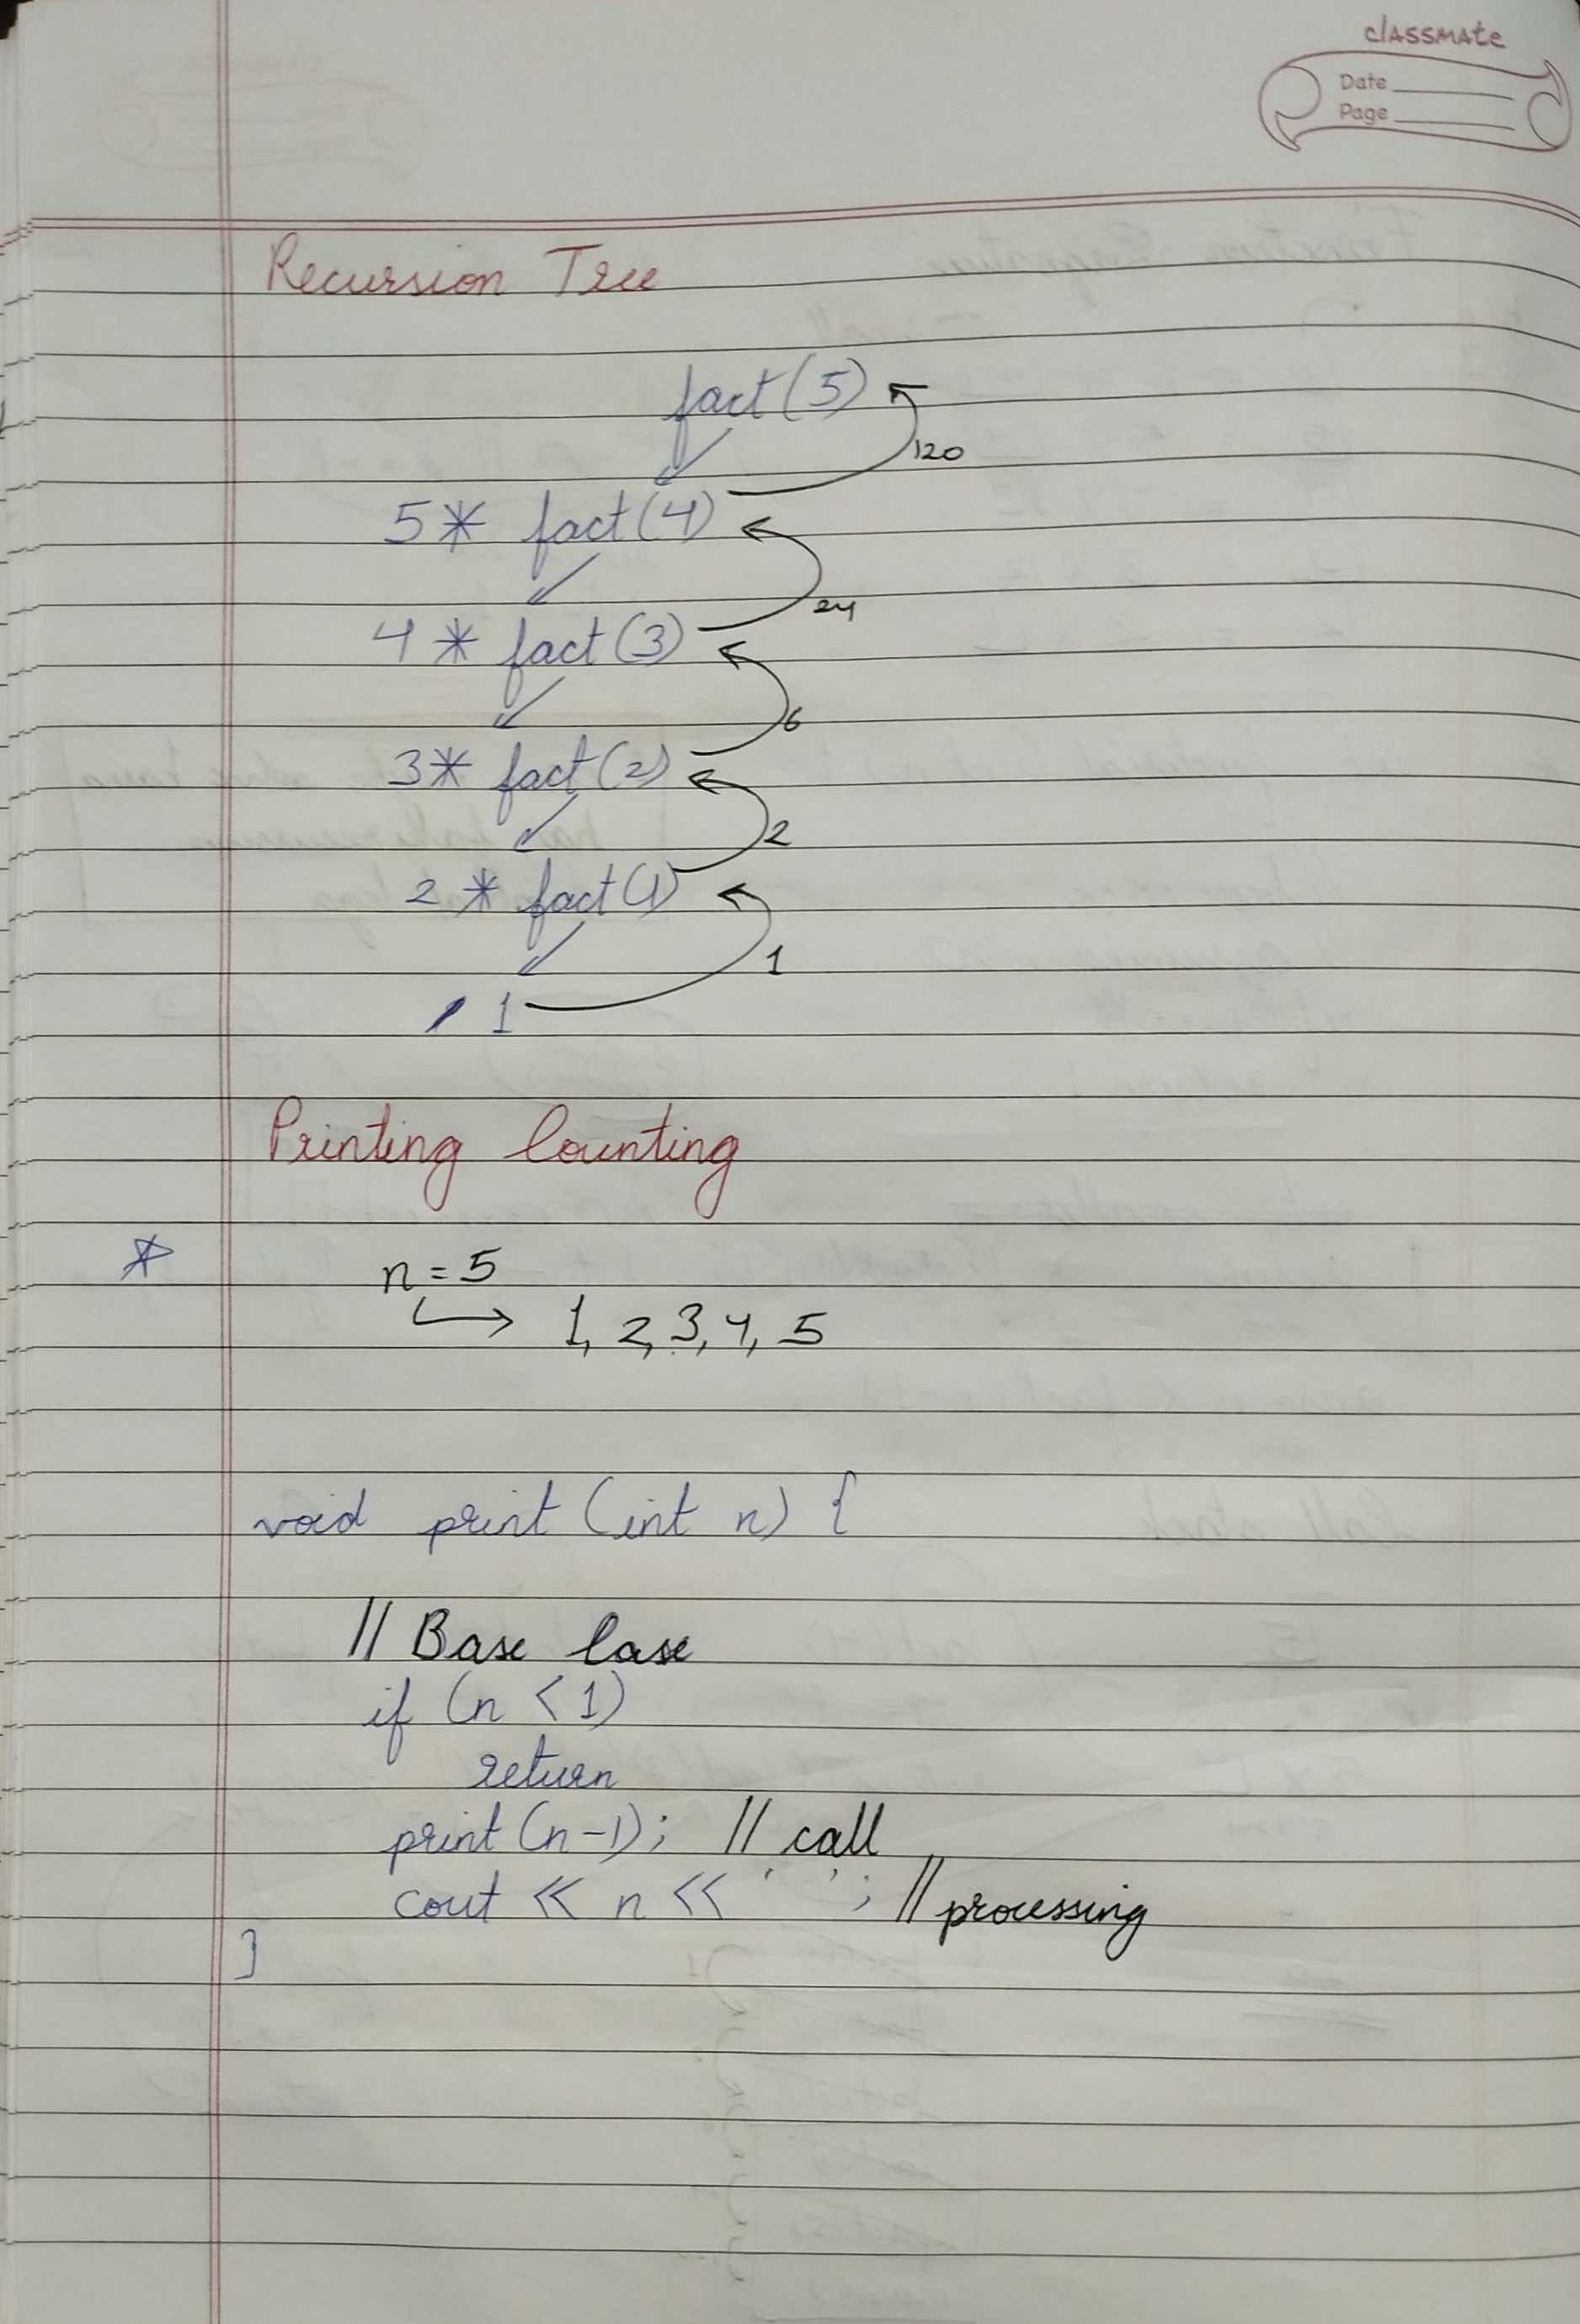 classmate
Date
Page
Recursion Tree
fact(5)
120
5* fact(4)
24
4* fact(3)
6
3* fact(2)
2
2 * fact(1)
1
1
Printing Counting
n=5
1, 2, 3, 4, 5
void print (int n) {
// Base Case
if (n < 1)
return
print (n-1); // call
cout << n << ' '; // processing
}